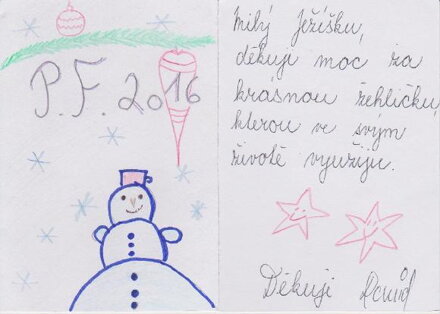 P.F. 2016
Milý Ježíšku,
děkuji moc za
krásnou žehličku,
kterou ve svým
životě využiju.
Děkuji David